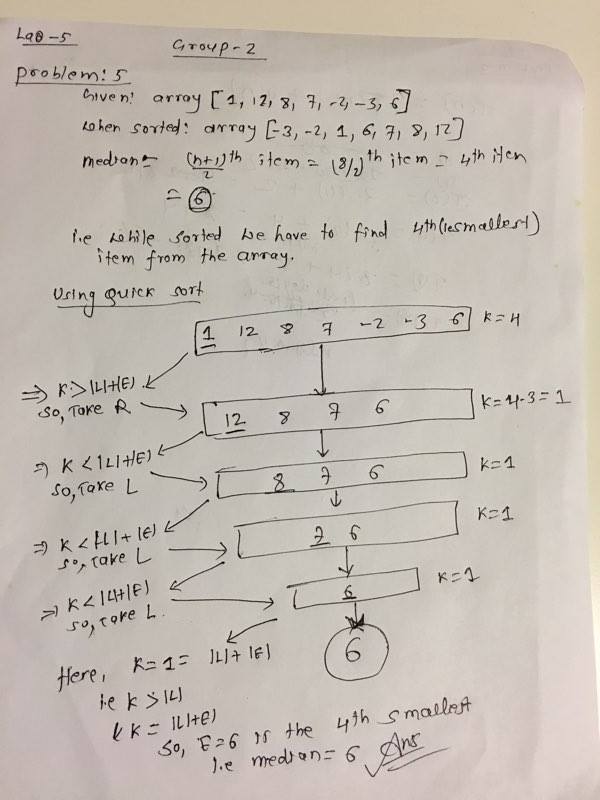 Lab-5
Group-2
Problem: 5
Given: array [1, 12, 8, 7, -2, -3, 6]
When sorted: array [-3, -2, 1, 6, 7, 8, 12]
median = (n+1)/2 th item = (8/2)th item = 4th item
= 6
i.e while sorted we have to find 4th (smallest)
item from the array.
Using quick sort
1 12 8 7 -2 -3 6 K=4
⇒ K > |L|+|E|
so, Take R
12 8 7 6 K=4-3=1
⇒ K < |L|+|E|
so, Take L
8 7 6 K=1
⇒ K < |L|+|E|
so, Take L
7 6 K=1
⇒ K < |L|+|E|
so, Take L.
6 K=1
6
Here, K=1= |L|+|E|
i.e K > |L|
& K = |L|+|E|
so, E=6 is the 4th smallest
i.e median = 6 Ans